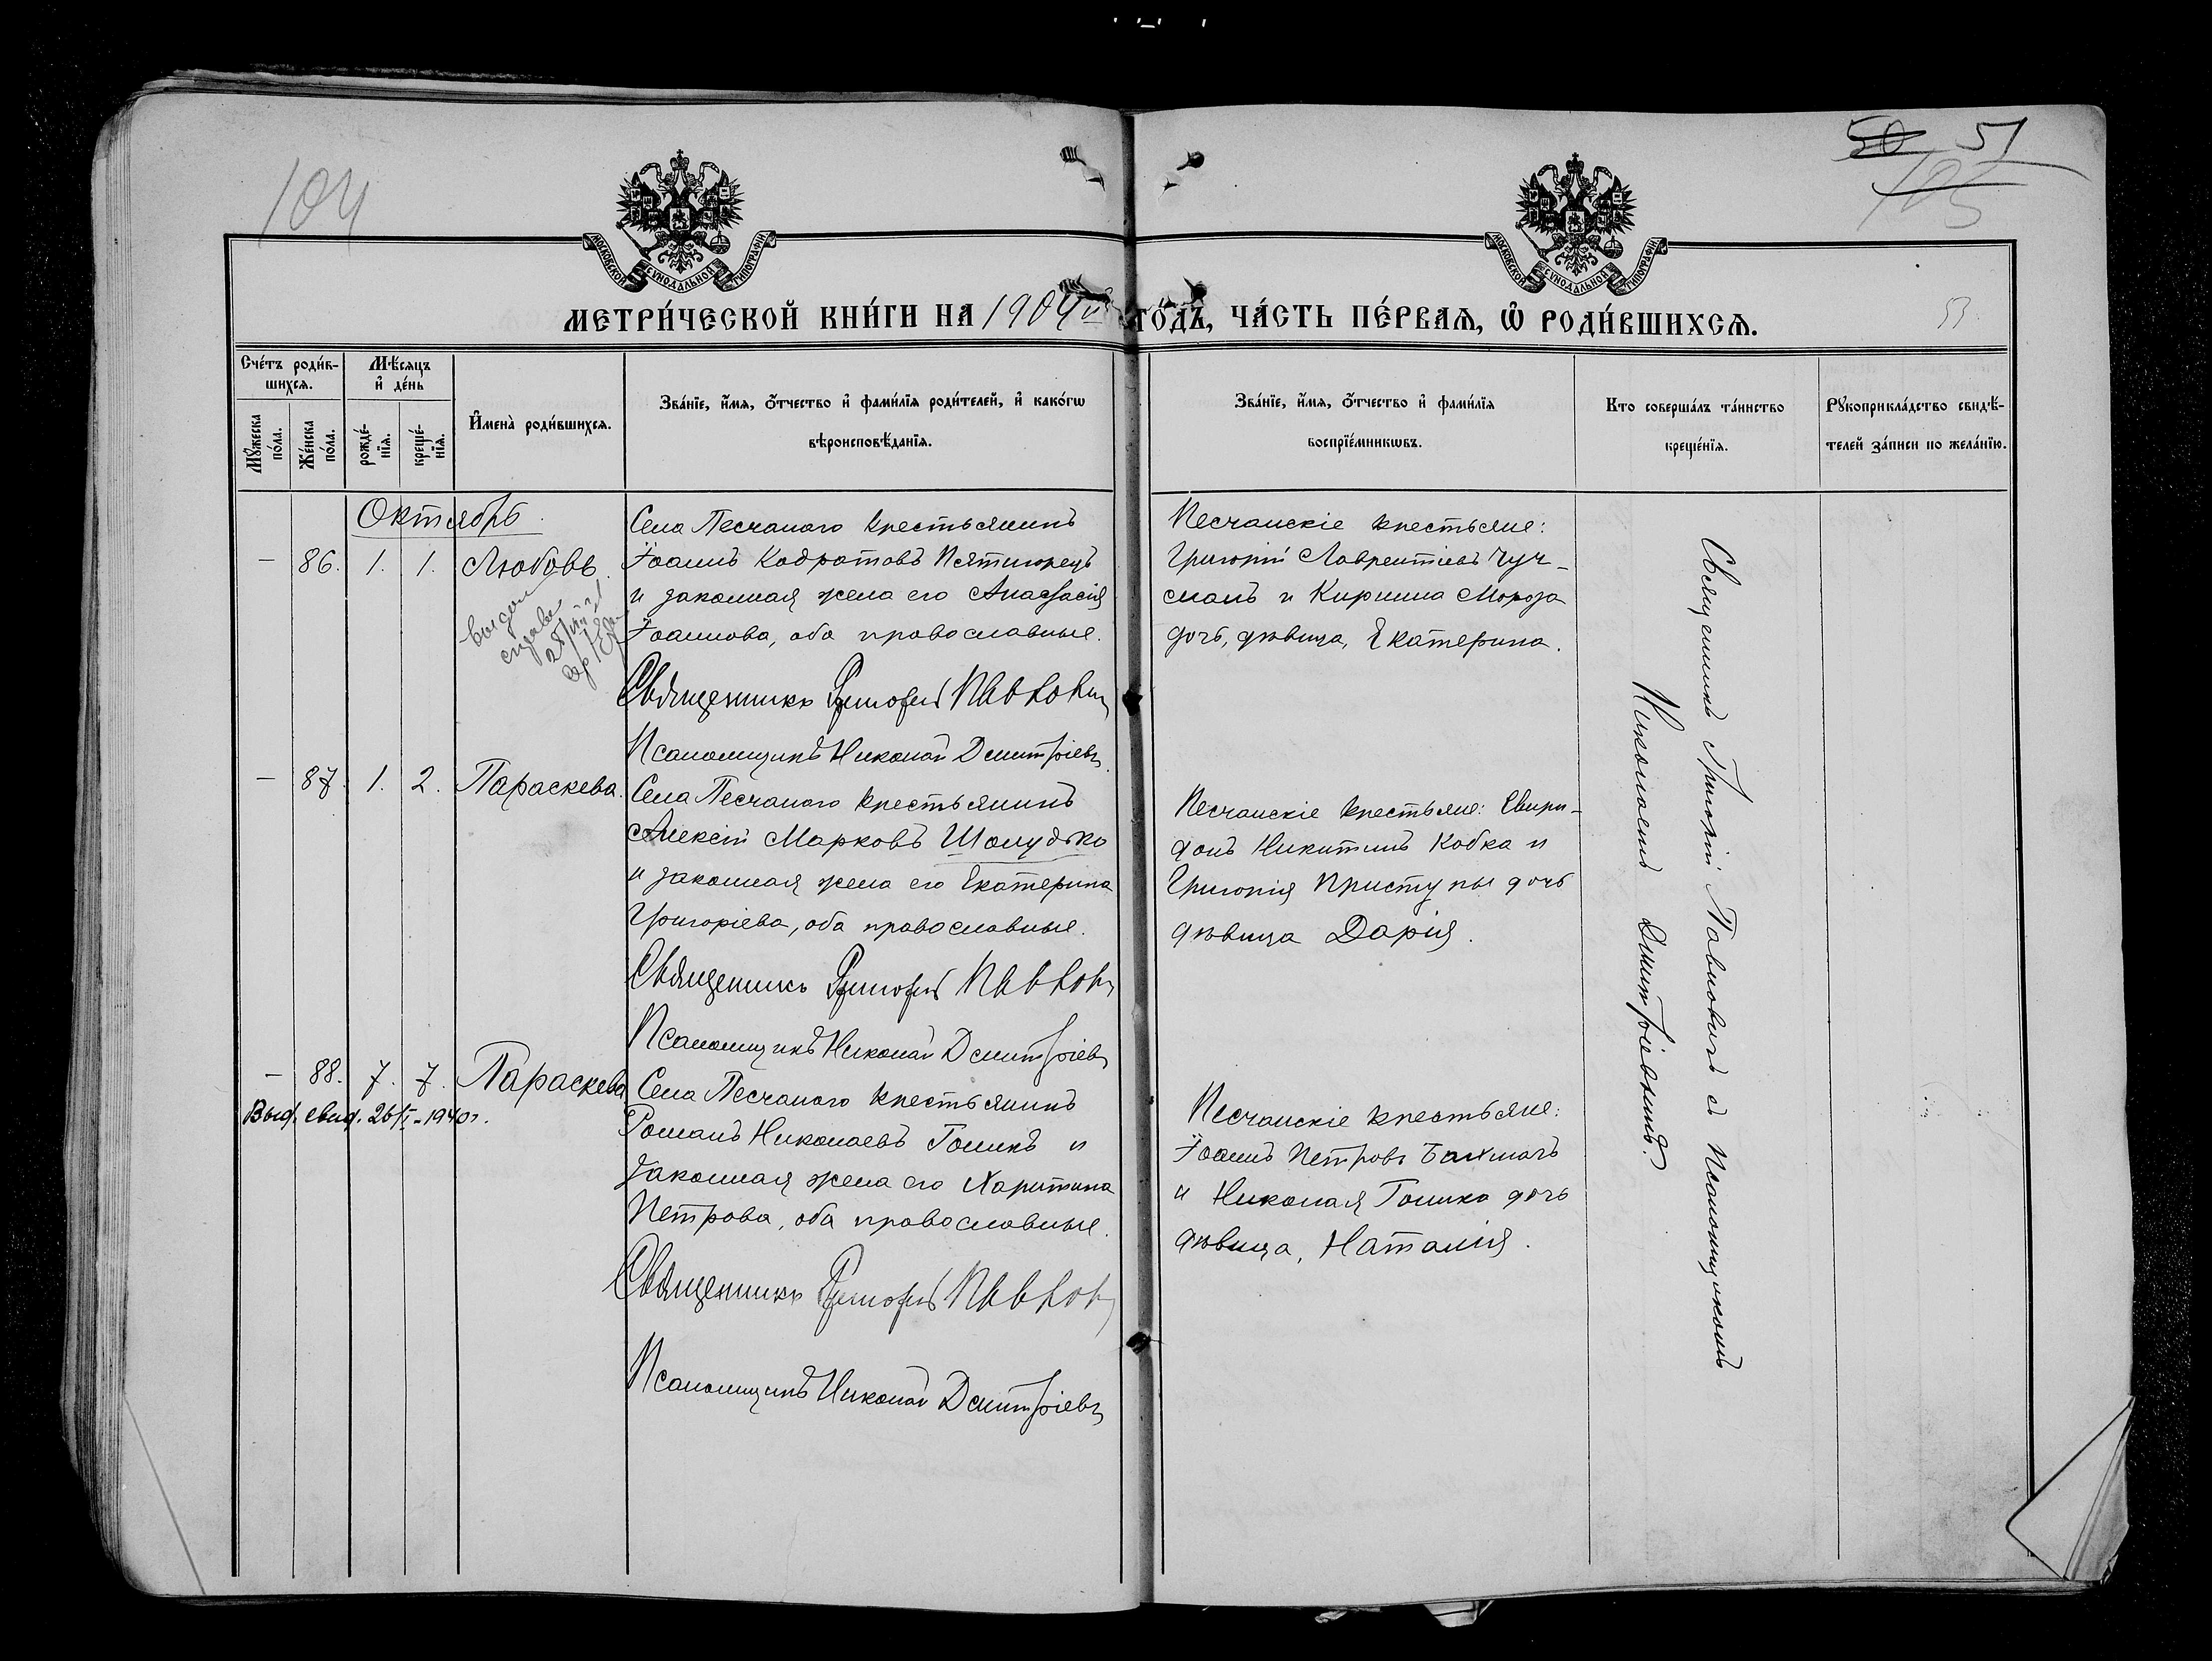 104
50 51
105
МОСКОВСКОЙ СѴНОДАЛЬНОЙ ТИПОГРАФІИ
МОСКОВСКОЙ СѴНОДАЛЬНОЙ ТИПОГРАФІИ
МЕТРИ́ЧЕСКОЙ КНИ́ГИ НА 1904й ГО́ДЪ, ЧА́СТЬ ПЕ́РВАѦ, Ѡ҆ РОДИ́ВШИХСѦ.
53
Сче́тъ роди́в-
шихсѧ.
Мѣ́сѧцъ
и҆ де́нь
Мꙋ́жеска
по́ла.
Же́нска
по́ла.
рожде́-
нїѧ.
креще́-
нїѧ.
И҆мена̀ роди́вшихсѧ.
Зва́нїе, и҆́мѧ, ѻ҆́тчество и҆ фами́лїѧ роди́телей, и҆ како́гѡ
вѣроисповѣ́данїѧ.
Зва́нїе, и҆́мѧ, ѻ҆́тчество и҆ фами́лїѧ
воспрїе́мникѡвъ.
Кто соверша́лъ та́инство
креще́нїѧ.
Рꙋкоприкла́дство свидѣ́-
телей за́писи по жела́нїю.
Октябрь.
— 86. 1. 1. Любовь.
Села Песчаного крестьянинъ
Іоаннъ Кодратовъ Пятигорецъ
и законная жена его Анастасія
Іоаннова, оба православные.
Священникъ Григорій Павлович
Псаломщикъ Николай Дмитріевъ
Песчанскіе крестьяне:
Григорій Лаврентіевъ Чуч-
манъ и Кирилла Мороза
дочь, дѣвица, Екатерина.
— 87. 1. 2. Параскева.
Села Песчаного крестьянинъ
Алексій Марковъ Шолудько
и законная жена его Екатерина
Григоріева, оба православные.
Священникъ Григорій Павлов
Псаломщикъ Николай Дмитріевъ
Песчанскіе крестьяне: Свири-
донъ Никитинъ Кобка и
Григорія Приступы дочь
дѣвица Дарія.
— 88. 7. 7. Параскева
Выд. свид. 26/I-1940г.
Села Песчаного крестьянинъ
Романъ Николаевъ Голикъ и
законная жена его Харитина
Петрова, оба православные.
Священникъ Григорій Павлов
Псаломщикъ Николай Дмитріевъ
Песчанскіе крестьяне:
Іоаннъ Петровъ Бахмачъ
и Николая Голика дочь
дѣвица, Наталія.
Священникъ Григорій Павловичъ съ псаломщикомъ
Николаемъ Дмитріевымъ.